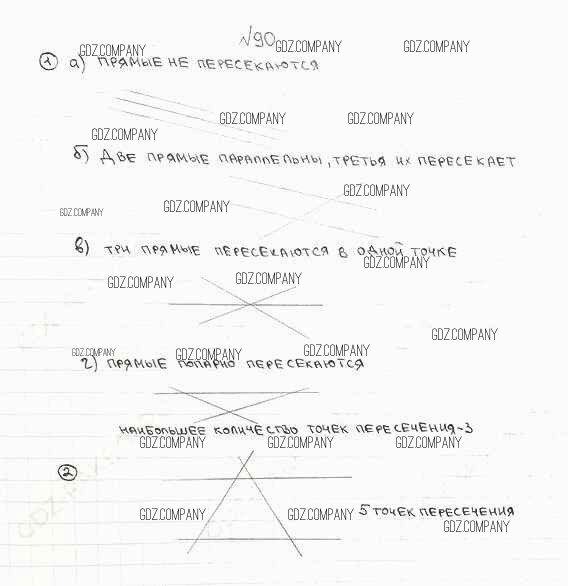 №90
GDZ.COMPANY GDZ.COMPANY GDZ.COMPANY
① а) ПРЯМЫЕ НЕ ПЕРЕСЕКАЮТСЯ
GDZ.COMPANY GDZ.COMPANY
GDZ.COMPANY
б) ДВЕ ПРЯМЫЕ ПАРАЛЛЕЛЬНЫ, ТРЕТЬЯ ИХ ПЕРЕСЕКАЕТ
GDZ.COMPANY
GDZ.COMPANY GDZ.COMPANY
в) ТРИ ПРЯМЫЕ ПЕРЕСЕКАЮТСЯ В ОДНОЙ ТОЧКЕ
GDZ.COMPANY
GDZ.COMPANY GDZ.COMPANY
GDZ.COMPANY
GDZ.COMPANY GDZ.COMPANY GDZ.COMPANY
г) ПРЯМЫЕ ПОПАРНО ПЕРЕСЕКАЮТСЯ
НАИБОЛЬШЕЕ КОЛИЧЕСТВО ТОЧЕК ПЕРЕСЕЧЕНИЯ-3
GDZ.COMPANY GDZ.COMPANY GDZ.COMPANY
②
GDZ.COMPANY GDZ.COMPANY 5 ТОЧЕК ПЕРЕСЕЧЕНИЯ
GDZ.COMPANY